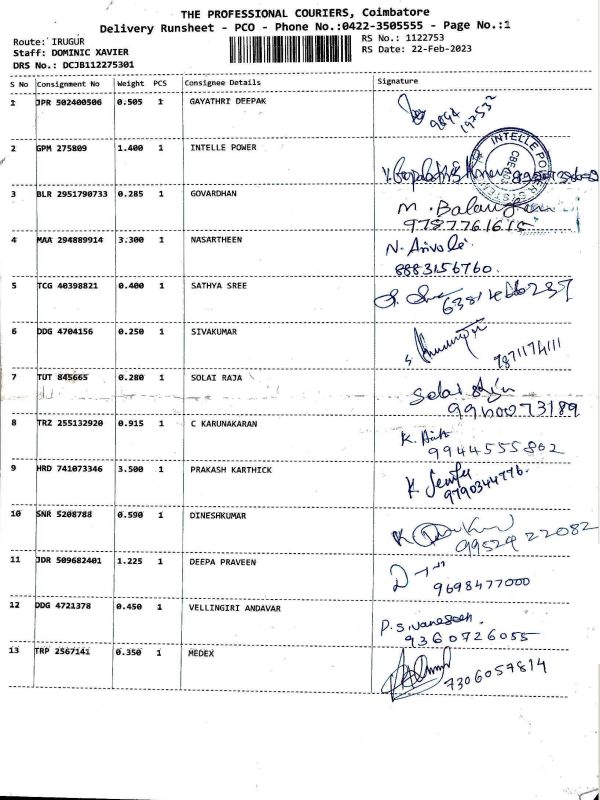 THE PROFESSIONAL COURIERS, Coimbatore
Delivery Runsheet - PCO - Phone No.:0422-3505555 - Page No.:1
Route: IRUGUR
RS No.: 1122753
Staff: DOMINIC XAVIER
RS Date: 22-Feb-2023
DRS No.: DCJB112275301
S No Consignment No Weight PCS Consignee Details Signature
1 JPR 502400506 0.505 1 GAYATHRI DEEPAK
9894
197532
2 GPM 275809 1.400 1 INTELLE POWER
INTELLE POWER
3 BLR 2951790733 0.285 1 GOVARDHAN
M. Balan
9787761615
4 MAA 294889914 3.300 1 NASARTHEEN N. Arivole
8883156760.
5 TCG 40398821 0.400 1 SATHYA SREE
6 DDG 4704156 0.250 1 SIVAKUMAR
7871174111
7 TUT 845665 0.280 1 SOLAI RAJA
Solai
9960073189
8 TRZ 255132920 0.915 1 C KARUNAKARAN K.
9944555802
9 HRD 741073346 3.500 1 PRAKASH KARTHICK K
9790344776.
10 SNR 5208788 0.590 1 DINESHKUMAR K
99524 22082
11 JDR 509682401 1.225 1 DEEPA PRAVEEN
9698477000
12 DDG 4721378 0.450 1 VELLINGIRI ANDAVAR
P. Sivaneseeh
9360726055
13 TRP 2567141 0.350 1 MEDEX
7306057814